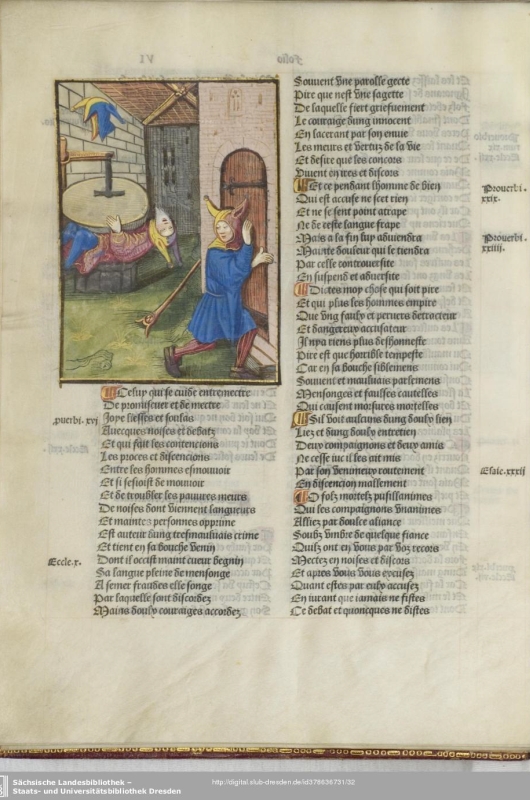 Celuy qui se cuide entremectre
De promiscuer et de mectre
Joye liesses et soulas
Avecques noises et debatz
Et qui fait les contencions
Les proces et discencions
Entre les hommes esmouvoir
Et si sesioist de mouvoir
Et de troubler les pauvres meurs
De noises dont viennent langueurs
Et maintes personnes opprime
Est auteur dung tresmauluais crime
Et tient en sa bouche venin
Dont il occist maint cueur begnin
Sa langue pleine de mensonge
A semer fraudes elle songe
Par laquelle sont discordez
Mains doulx couraiges accordez
puerbi. xvj
Eccle. x.
Souvent vne parolle gecte
Pire que nest vne sagette
De laquelle fiert griefuement
Le couraige dung innocent
En lacerant par son enuie
Les meurs et vertuz de la vie
Et desire que les concors
Viuent en ires et discors
Et ce pendant lhomme de bien
Qui est accuse ne scet rien
Et ne se sent point atrape
Ne de ceste langue frape
Mais a la fin luy aduiendra
Mainte douleur qui le tiendra
Par celle controuersite
En suspend et aduersite
Dictes moy chose qui soit pire
Et qui plus les hommes empire
Que vng faulx et peruers detracteur
Et dangereux accusateur
Il nya riens plus deshonneste
Pire est que horrible tempeste
Car en sa bouche siblemens
Souuent et mauluais parlemens
Mensonges et faulses cautelles
Qui causent morsures mortelles
Sil voit aulcuns dung doulx lien
Liez et dung doulx entretien
Deux compaignons et deux amis
Ne cesse iuc il les ait mis
Par son venimeux
En discencion mallement
O folz mortelz pusillanimes
Qui les compaignons vnanimes
Alliez par doulce aliance
Soubz vmbre de quelque fiance
Quilz ont en vous par voz recors
Mectez en noises et discors
Et apres vous vous excusez
Quant estes par eulx accusez
En iurant que iamais ne fistes
Ce debat et quoncques ne distes
Prouerbi.
xxix.
Prouerbi.
xxiiii.
Esaie. xxxii
Sächsische Landesbibliothek –
Staats- und Universitätsbibliothek Dresden
http://digital.slub-dresden.de/id378636731/32